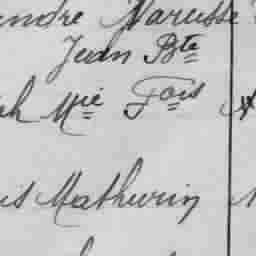 Narcisse
Jean Bte
Mie Fois
Mathurin